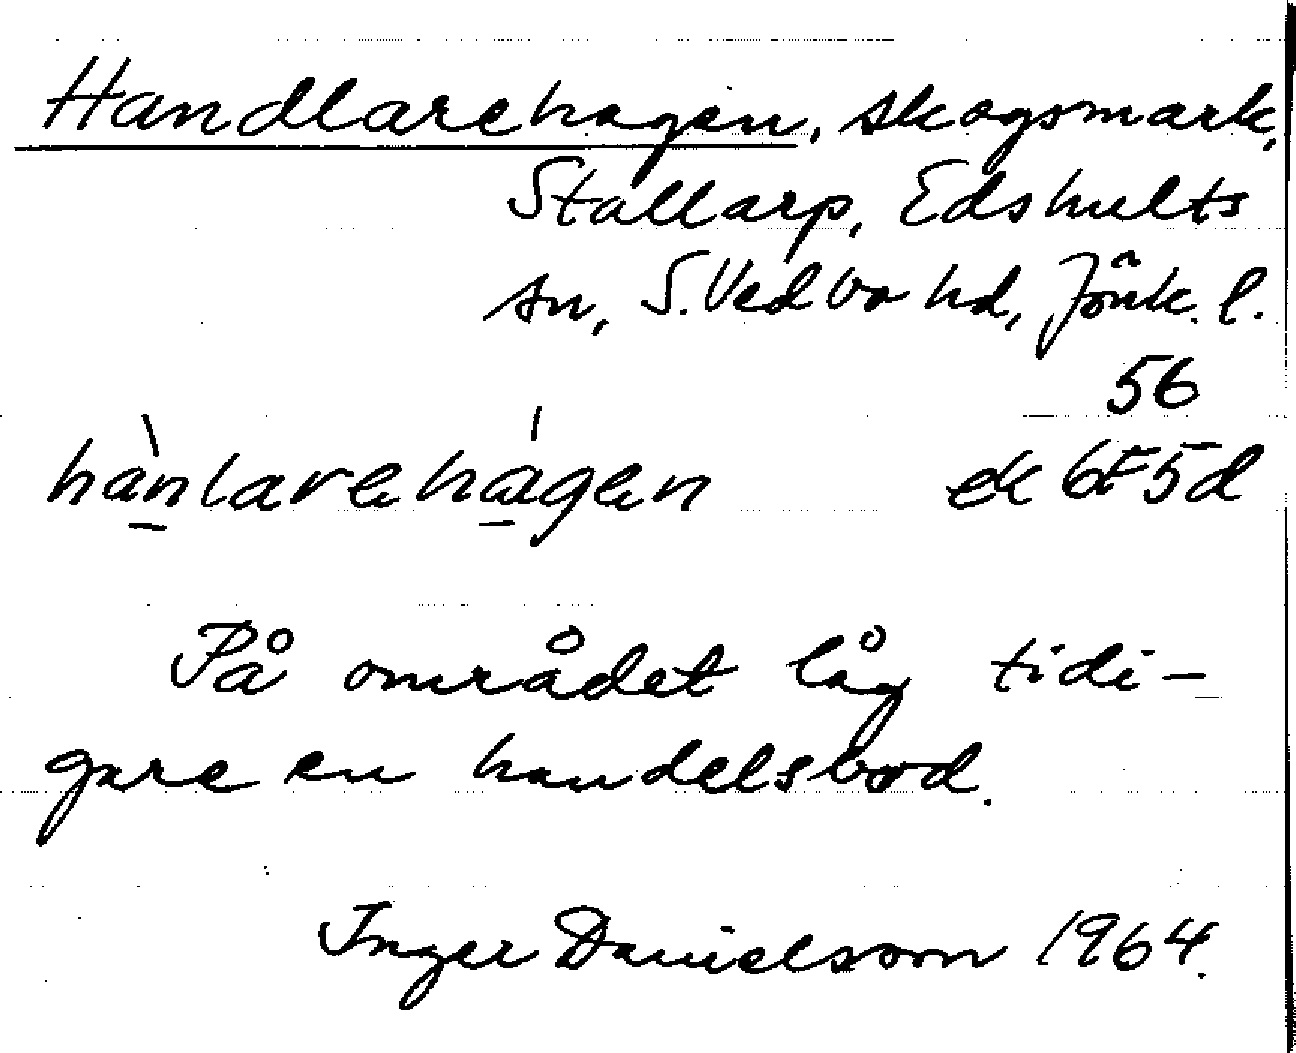 Handlarehagen, skogsmark,
Stallarp, Edshults
sn, S. Vedbo hd, Jönk. l.
56
hànlarehágen ek 6F5d
På området låg tidi-
gare en handelsbod.
Inger Danielsson 1964.